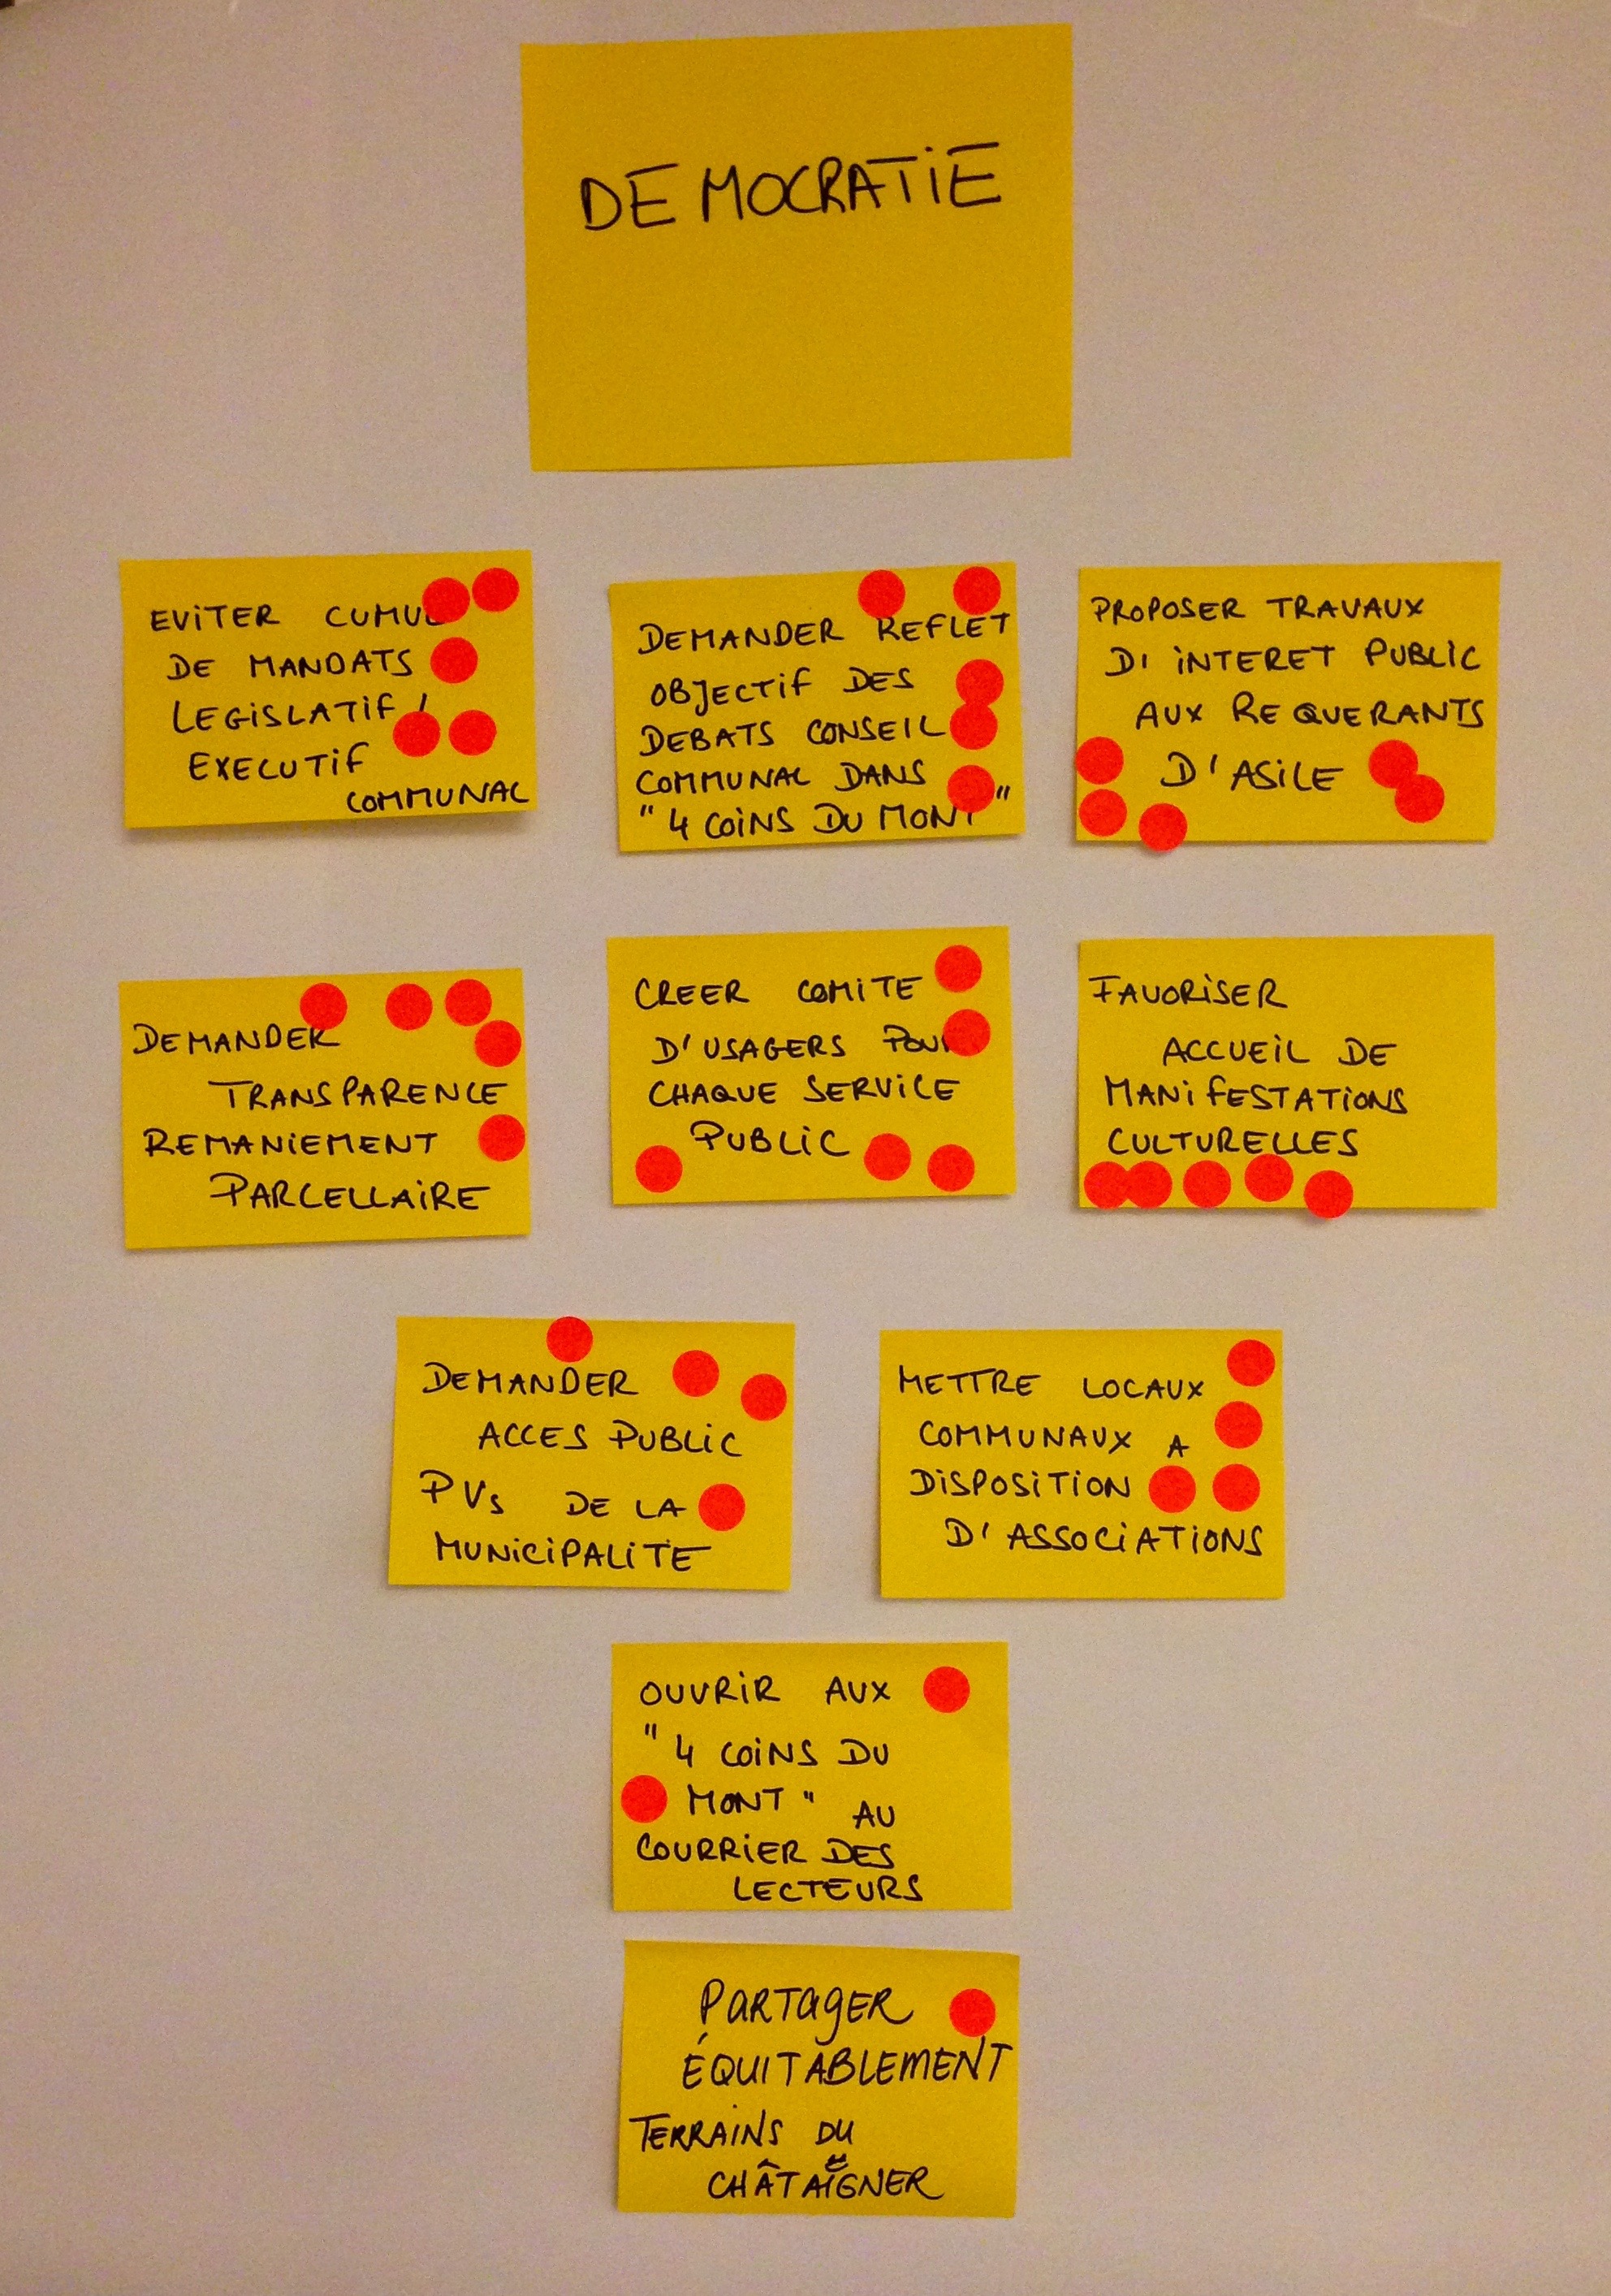 DEMOCRATIE
EVITER CUMUL
DE MANDATS
LEGISLATIF /
EXECUTIF
COMMUNAL
DEMANDER REFLET
OBJECTIF DES
DEBATS CONSEIL
COMMUNAL DANS
"4 COINS DU MONT"
PROPOSER TRAVAUX
D'INTERET PUBLIC
AUX REQUERANTS
D'ASILE
DEMANDER
TRANSPARENCE
REMANIEMENT
PARCELLAIRE
CREER COMITE
D'USAGERS POUR
CHAQUE SERVICE
PUBLIC
FAVORISER
ACCUEIL DE
MANIFESTATIONS
CULTURELLES
DEMANDER
ACCES PUBLIC
PVs DE LA
MUNICIPALITE
METTRE LOCAUX
COMMUNAUX A
DISPOSITION
D'ASSOCIATIONS
OUVRIR AUX
"4 COINS DU
MONT" AU
COURRIER DES
LECTEURS
PARTAGER
ÉQUITABLEMENT
TERRAINS DU
CHÂTAIGNER